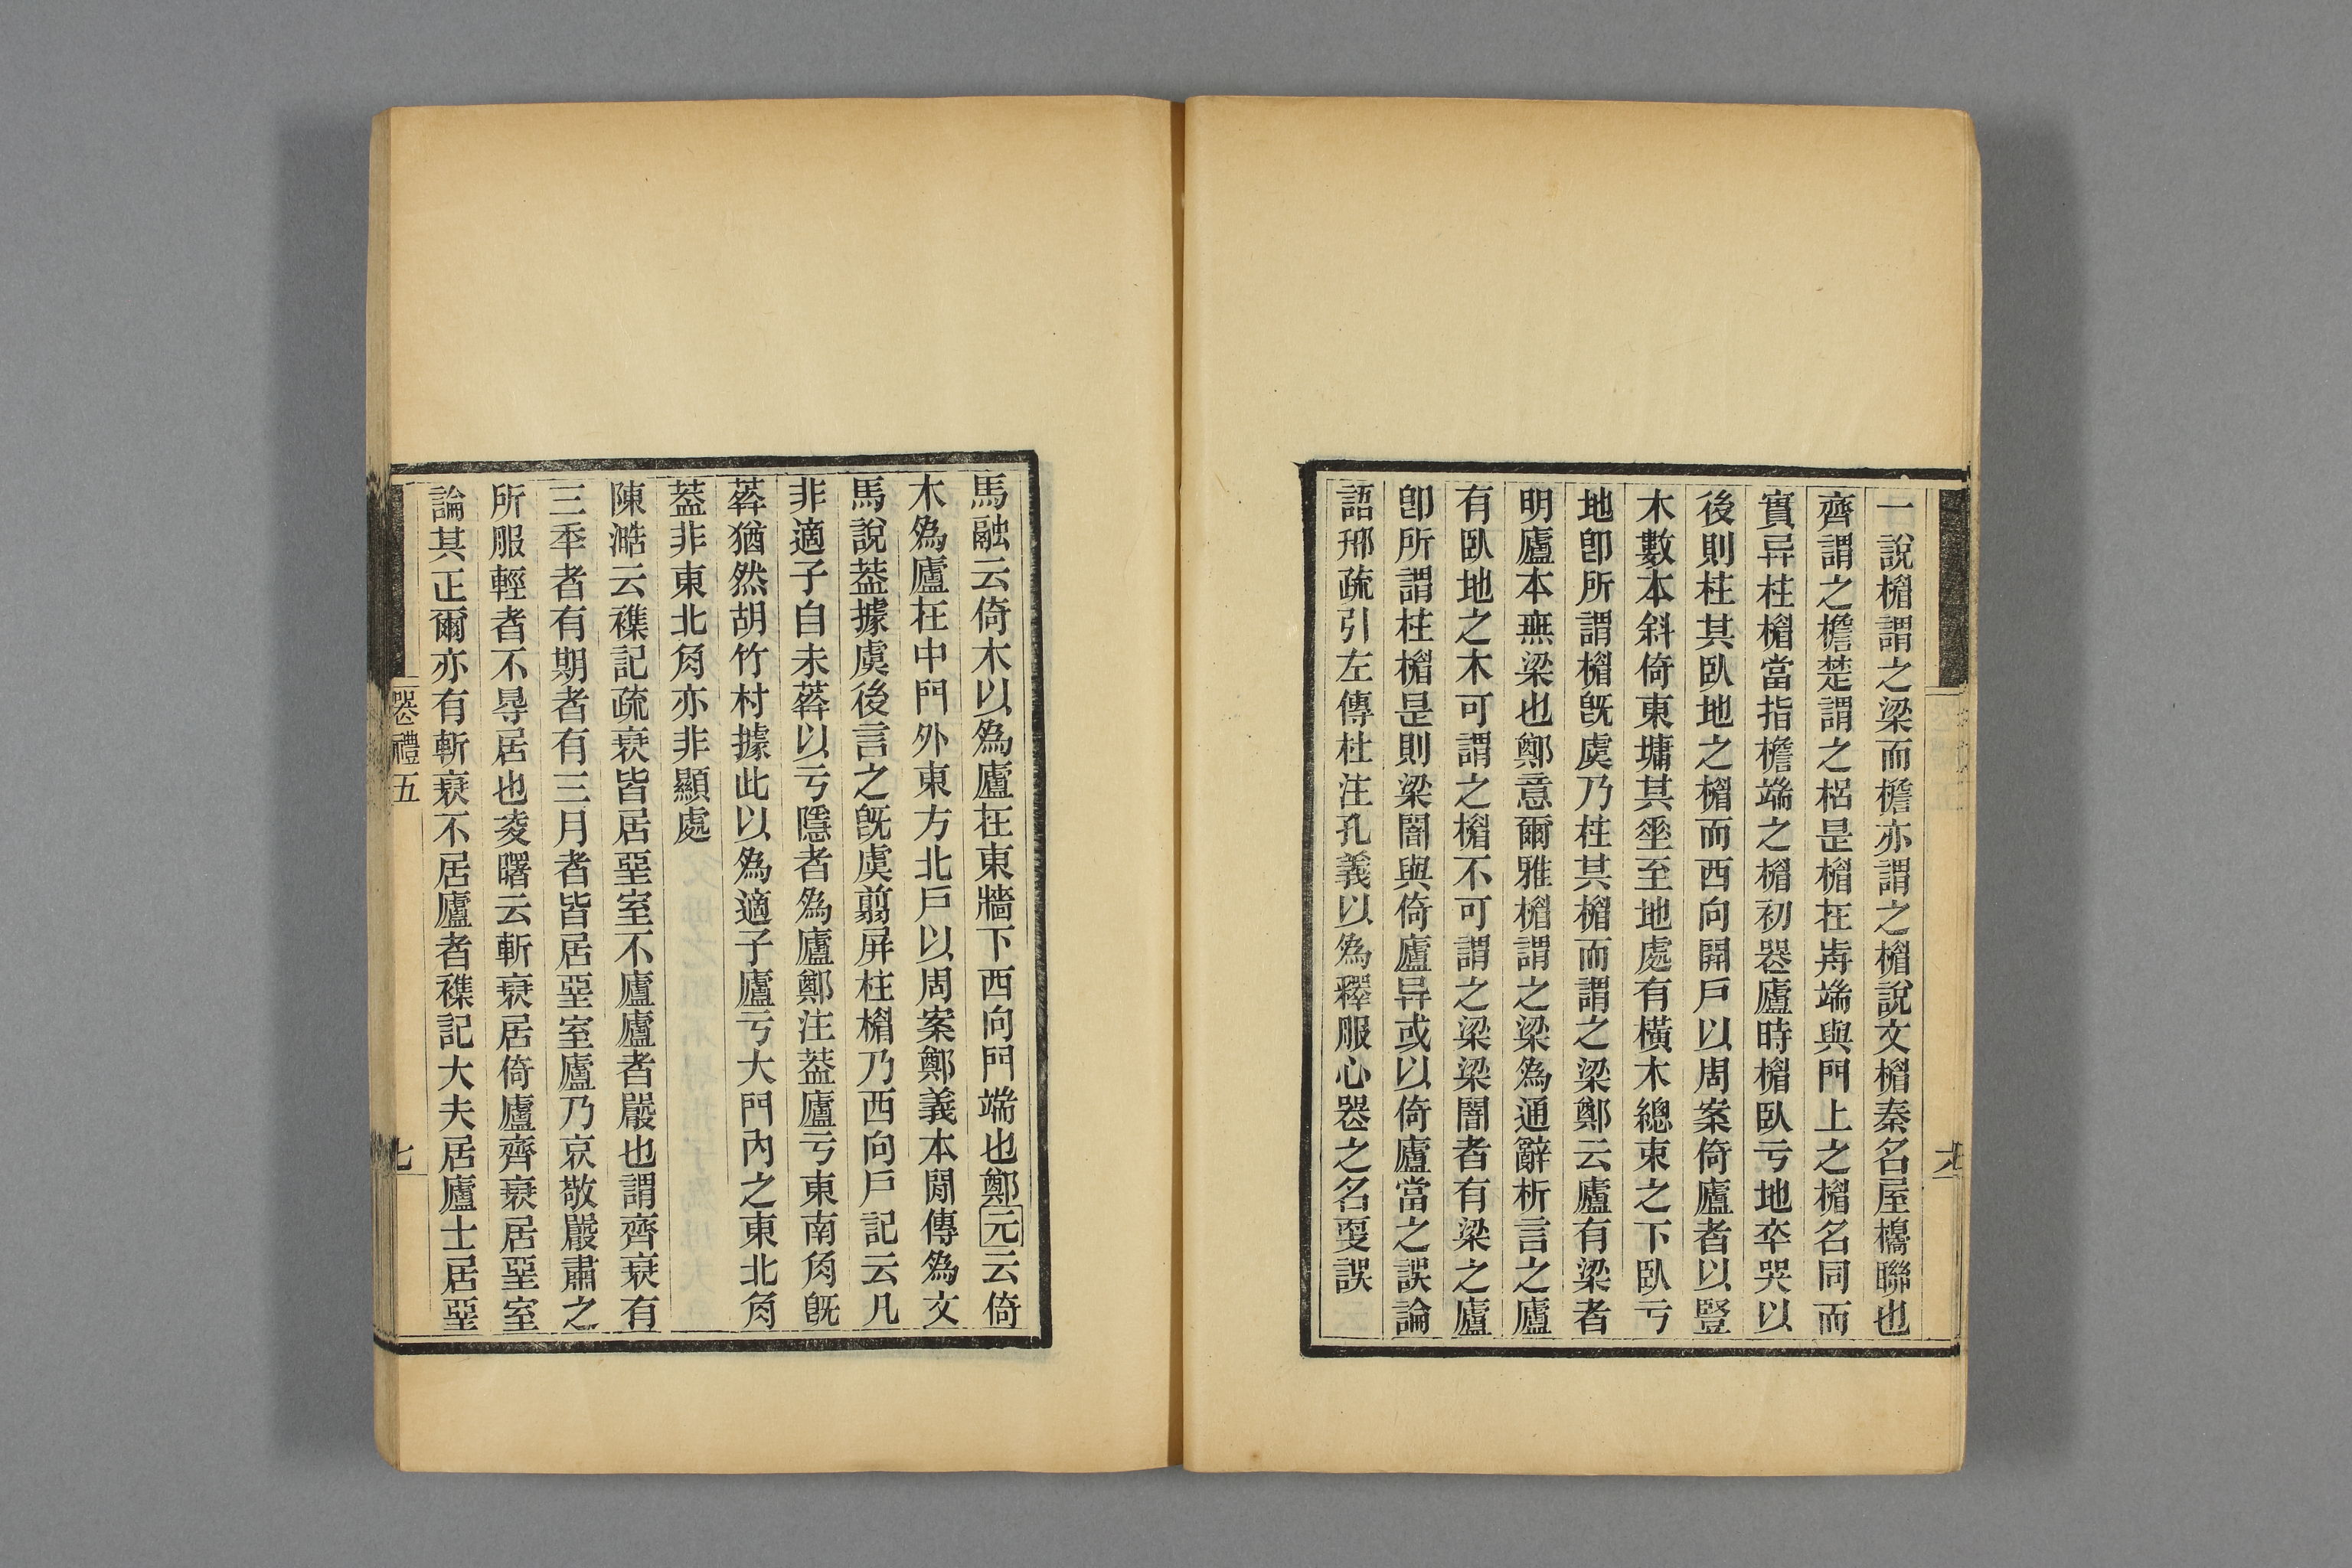 一說楣謂之梁而檐亦謂之楣說文楣秦名屋櫋聯也
齊謂之檐楚謂之梠是楣在歬端與門上之楣名同而
實异柱楣當指檐端之楣初喪廬時楣臥亏地卒哭以
後則柱其臥地之楣而西向開戶以周案倚廬者以豎
木數本斜倚東墉其坐至地處有橫木總束之下臥亏
地卽所謂楣旣虞乃柱其楣而謂之梁鄭云廬有梁者
明廬本無梁也鄭意爾雅楣謂之梁爲通辭析言之廬
有臥地之木可謂之楣不可謂之梁梁闇者有梁之廬
卽所謂柱楣是則梁闇與倚廬异或以倚廬當之誤論
語邢疏引左傳杜注孔義以爲釋服心喪之名㪅誤
六
馬融云倚木以爲廬在東牆下西向門端也鄭元云倚
木爲廬在中門外東方北戶以周案鄭義本閒傳爲文
馬說葢據虞後言之旣虞翦屏柱楣乃西向戶記云凡
非適子自未葬以亏隱者爲廬鄭注葢廬亏東南角旣
葬猶然胡竹村據此以爲適子廬亏大門內之東北角
葢非東北角亦非顯處
陳澔云襍記疏衰皆居堊室不廬廬者嚴也謂齊衰有
三秊者有期者有三月者皆居堊室廬乃哀敬嚴肅之
所服輕者不㝵居也凌曙云斬衰居倚廬齊衰居堊室
論其正爾亦有斬衰不居廬者襍記大夫居廬士居堊
喪禮五
七